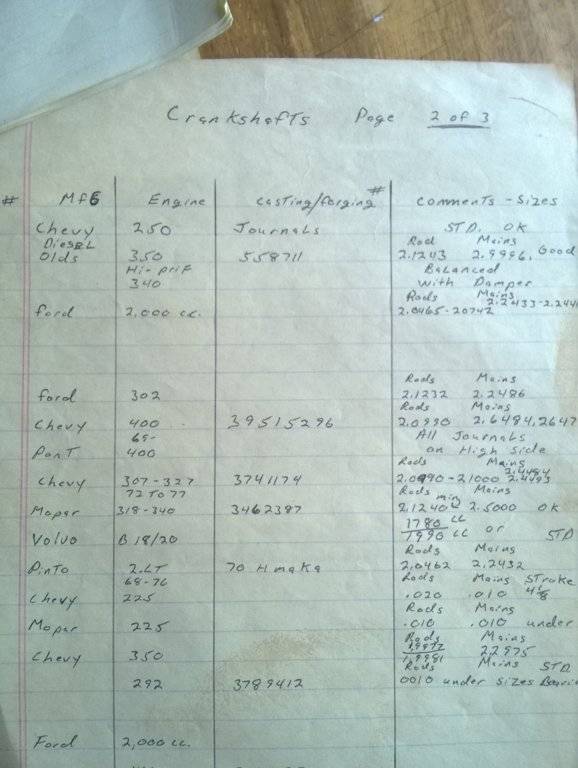 Crankshafts Page 2 of 3
# MfG Engine casting/forging # comments - Sizes
Chevy 250 Journals STD. OK
Diesel Rod Mains
Olds 350 558711 2.1243 2.9996. Good
Hi-prif Balanced
340 with Damper
Rods Mains
Ford 2,000 cc. 2.0465-20742 2.2433-2.244
Rods Mains
Ford 302 2.1232 2.2486
Rods Mains
Chevy 400 39515296 2.0990 2.6484,2647
65- All Journals
PonT 400 on High side
Rods Mains
Chevy 307-327 3741174 2.0990-21000 2.4484
72 TO 77 Rods Mains
Mopar 318-340 3462387 2.1240 min 2.5000 OK
Volvo B 18/20 1780 cc or STD
1990 cc
Rods Mains
PinTo 2.LT 70 H 2.0462 2.2432
68-76 Rods Mains Stroke
Chevy 225 .020 .010 4 1/8
Rods Mains
Mopar 225 .010 .010 under
Rods Mains
Chevy 350 1.9981 22975
Rods Mains STD
292 3789412 0010 under sizes
Ford 2,000 cc.